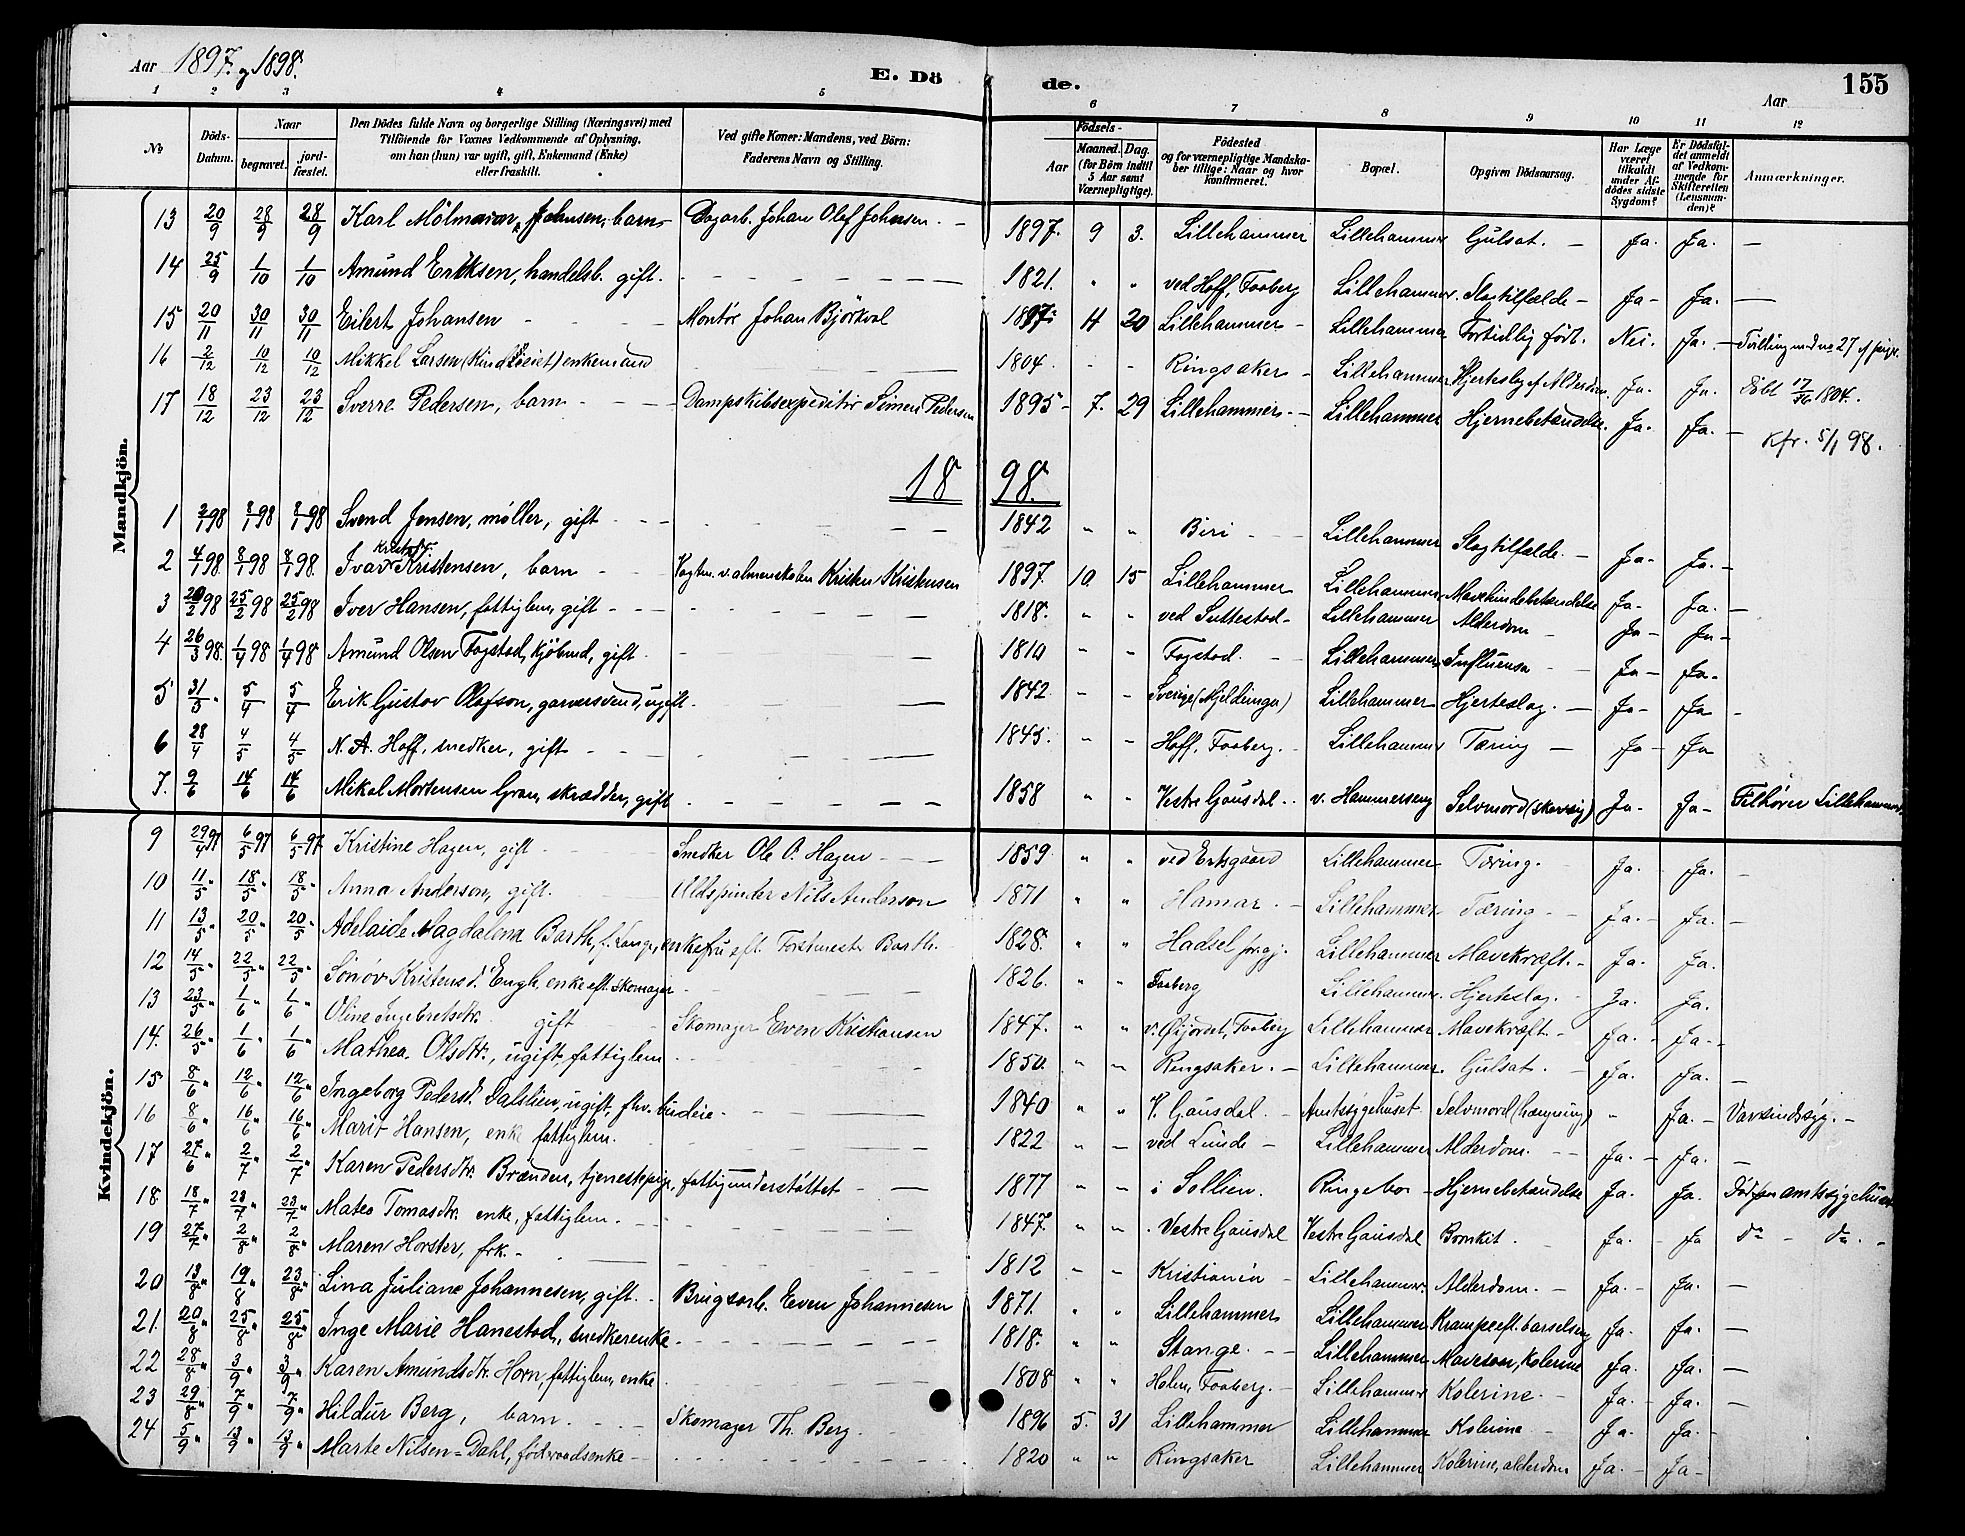 Aar 1897. og 1898.
E. Dö de.
Aar
155
1 2 3 4 5 6 7 8 9 10 11 12
No Döds-Datum. Naar begravet. jord-fæstet. Den Dödes fulde Navn og borgerlige Stilling (Næringsvei) med Tilföiende for Voxnes Vedkommende af Oplysning, om han (hun) var ugift, gift, Enkemand (Enke) eller fraskilt. Ved gifte Koner: Mandens, ved Börn: Faderens Navn og Stilling. Födsels- Aar Maaned. Dag. (for Börn indtil 5 Aar samt Værnepligtige). Födested og for værnepligtige Mandskaber tillige: Naar og hvor konfirmeret. Bopæl. Opgiven Dödsaarsag. Har Læge været tilkaldt under Afdödes sidste Sygdom? Er Dödsfaldet anmeldt af Vedkommende for Skifteretten (Lensmanden)? Anmærkninger.
Mandkjön.
13 20/9 28/9 28/9 Karl Johnsen, barn Dagarb. Johan Olaf Johnsen. 1897. 9 3. Lillehammer Lillehammer Gulsot. Ja. Ja. —
14 25/9 1/10 1/10 Amund Eriksen, handelsb. gift. 1821. " " ved Hoff, Faaberg Lillehammer. Slagtilfælde Ja Ja. —
15 20/11 30/11 30/11 Eilert Johansen Montør Johan Björkvol 1897. 11 20 Lillehammer Lillehammer Fortidlig födt. Nei. Ja. — Tvilling med no 27 af
16 2/12 10/12 10/12 Mikkel Larsen enkemand 1804. Ringsaker Lillehammer Hjerteslag af Alderdom Ja. Ja. Döbt 1804.
17 18/12 23/12 23/12 Sverre Pedersen, barn Dampskibsexpeditör Simen Pedersen 1895 7. 29 Lillehammer Lillehammer Hjernebetændelse. Ja. Ja. Kfr. 5/1 98.
1898.
1 3/1 98 8/1 98 8/1 98 Svend Jensen, møller, gift 1842 " " Biri Lillehammer Slagtilfælde. Ja Ja. —
2 4/1 98 8/1 98 8/1 98. Ivar Kristensen, barn Vagtm. v. almenskolen Kristen Kristensen 1897. 10. 15 Lillehammer Lillehammer Ja. Ja. —
3 20/2 98 25/2 98 25/2 98 Iver Hansen, fattiglem, gift 1818. " " ved Suttestad Lillehammer Alderdom Ja Ja
4 26/3 98. 1/4 98 1/4 98 Amund Olsen Fogstad, kjöbmd, gift 1810 " " Fogstad. Lillehammer Influensa Ja Ja.
5 31/3 " 5/4 5/4 Erik Gustav Olafson, garversvend, ugift. 1842 " " Sverige Lillehammer Hjerteslag. Ja Ja —
6 28/4 4/5 4/5 N. A. Hoff, snedker, gift 1845. " " Hoff, Faaberg. Lillehammer Tæring Ja Ja
7. 9/6 14/6 14/6 Mikal Mortensen Gran, skrædder, gift 1858 " " Vestre Gausdal v. Hammerseng Selvmord Ja. Ja Tilhörer Lillehammer
Kvindekjön.
9 29/4 97 6/5 97 6/5 97 Kristine Hagen, gift Snedker Ole O. Hagen 1859 " " ved Lillehammer Tæring. Ja. Ja. —
10 11/5 " 18/5 " 18/5 " Anna Anderson, gift. Uldspinder Nils Anderson 1871 " " Hamar Lillehammer Tæring Ja. Ja. —
11 13/5 " 20/5 " 20/5 " Adelaide Magdalena Barth, f. Lange, enkefru eft. Forstmester Barth. 1828. " " Hadsel pr.gj. Lillehammer Mavekræft. Ja. Ja.
12 14/5 " 22/5 " 22/5 " Sönöv Kristensd. Engh. enke eft. skomager 1826. " " Faaberg Lillehammer. Hjerteslag. Ja. Ja.
13 23/5 " 1/6 " 1/6 " Oline Ingebretsdtr. gift Skomager Even Kristiansen 1847. " " v. Öijordet, Faaberg Lillehammer Mavekræft Ja. Ja.
14. 26/5 " 1/6 " 1/6 " Mathea Olsdtr., ugift, fattiglem 1850. " " Ringsaker. Lillehammer. Gulsot. Ja. Ja. —
15 8/6 " 12/6 " 12/6 " Ingeborg Pedersd. Dalslien, ugift, fhv. budeie. 1840 " " V. Gausdal. Amtssygehuset Selvmord (hængning) " Ja. Var sindssyg.
16 8/6 " 16/6 " 16/6 " Marit Hansen, enke fattiglem. 1822 " " ved Lunde Lillehammer Alderdom. Ja. Ja. —
17 27/6 " 2/7 " 2/7 " Karen Pedersdtr. Brænden, tjenestepige, fattigunderstöttet 1877 " " i Sollien. Ringebo Hjernebetændelse Ja. Ja. Död paa amtssygehuset
18. 18/7 " 23/7 " 23/7 " Matea Tomasdtr. enke, fattiglem. 1847. " " Vestre Gausdal Vestre Gausdal Bronkit. Ja. Ja do do.
19 27/7 " 2/8 " 2/8 " Maren Horster, frk. 1812 " " Kristiania Lillehammer. Alderdom. Ja. Ja. —
20 13/8 " 19/8 " 23/8 " Lina Juliane Johannesen, gift. Brugsarb. Even Johannesen 1871. " " Lillehammer Lillehammer Krampe eft. barselseng Ja. Ja. —
21. 20/8 " 25/8 " 25/8 " Inge Marie Hanestad, snedkerenke 1818. " " Stange. Lillehammer Kolerine Ja. Ja. —
22 28/8 " 3/9 " 3/9 " Karen Amundsdtr. Horn, fattiglem, enke 1808 " " Holm, Faaberg. Lillehammer Kolerine. Ja. Ja. —
23 29/8 " 7/9 " 7/9 " Hildur Berg, barn. Skomager Th. Berg. 1896 5. 31 Lillehammer Lillehammer Kolerine Ja. Ja. —
24 5/9 " 13/9 " 13/9 " Marte Nilsen-Dahl, 1820 " " Ringsaker Lillehammer Kolerine, alderdom Ja. Ja